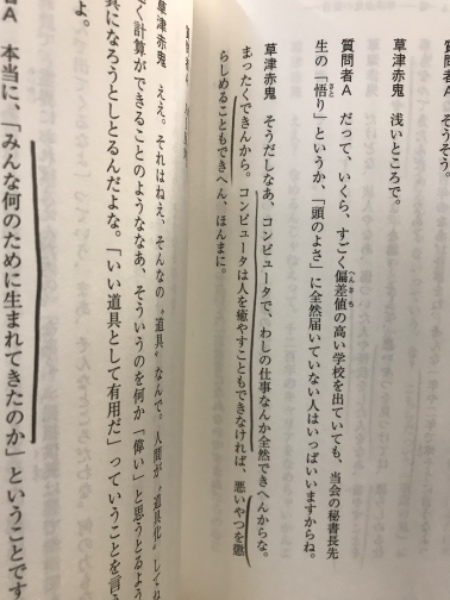 質問者A そうそう。
草津赤鬼 浅いところで。
質問者A だって、いくら、すごく偏差値の高い学校を出ていても、当会の秘書長先
生の「悟り」というか、「頭のよさ」に全然届いていない人はいっぱいいますからね。
草津赤鬼 そうだしなあ、コンピュータで、わしの仕事なんか全然できへんからな。
まったくできんから。コンピュータは人を癒やすこともできなければ、悪いやつを懲
らしめることもできへん、ほんまに。
草津赤鬼 ええ。それはねえ、そんなの〝道具〟なんで。人間が〝道具化〟して
く計算ができることのようななあ、そういうのを何か「偉い」と思うとるよう
具になろうとしとるんだよな。「いい道具として有用だ」っていうことを言う
よ。
者A 本当に、「みんな何のために生まれてきたのか」ということです